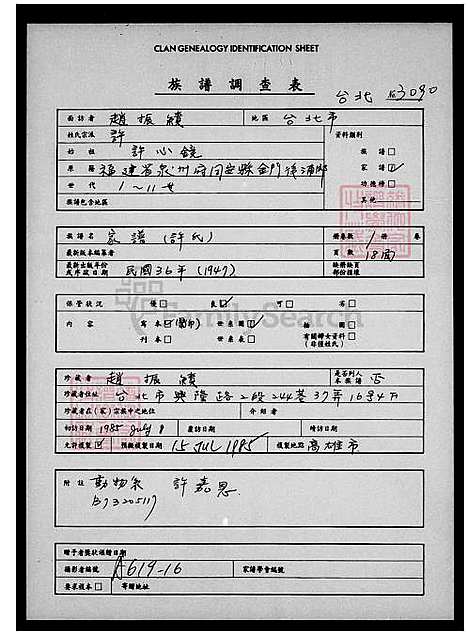 CLAN GENEALOGY IDENTIFICATION SHEET
族譜調查表
台北 №3090
面訪者 趙振績 地區 台北市
姓氏宗派 許 資料類別
始祖 許心鏡 族譜
原籍 福建省泉州府同安縣金門後浦鄉 家譜
世代 1~11世 功德榜
族譜包含地區 其他
族譜名 家譜(許氏) 冊卷數 1冊 卷
最新版本編纂者 頁數 18面
最新出版年份或序跋日期 民國36年(1947) 缺冊缺頁部份描述
保管狀況 優 良 可 劣
內容 寫本(影印) 世系圖 插圖
刊本 世系表 有關婦女資料(非僅姓氏)
珍藏者 趙振績 是否列入本族譜 否
珍藏者住址 台北市興隆路2段244巷37弄16号4F
珍藏者在(家)宗族中之地位 介紹者
初訪日期 1985 July 8 覆訪日期 晤訪日期
允許複製 預擬複製日期 15 JUL 1985 複製地點 高雄市
附註 動物系 許嘉恩
B73205117
贈予者獎狀頒贈日期
攝影者編號 A619-16 家譜學會編號
要求複本 寄贈地址
FamilySearch